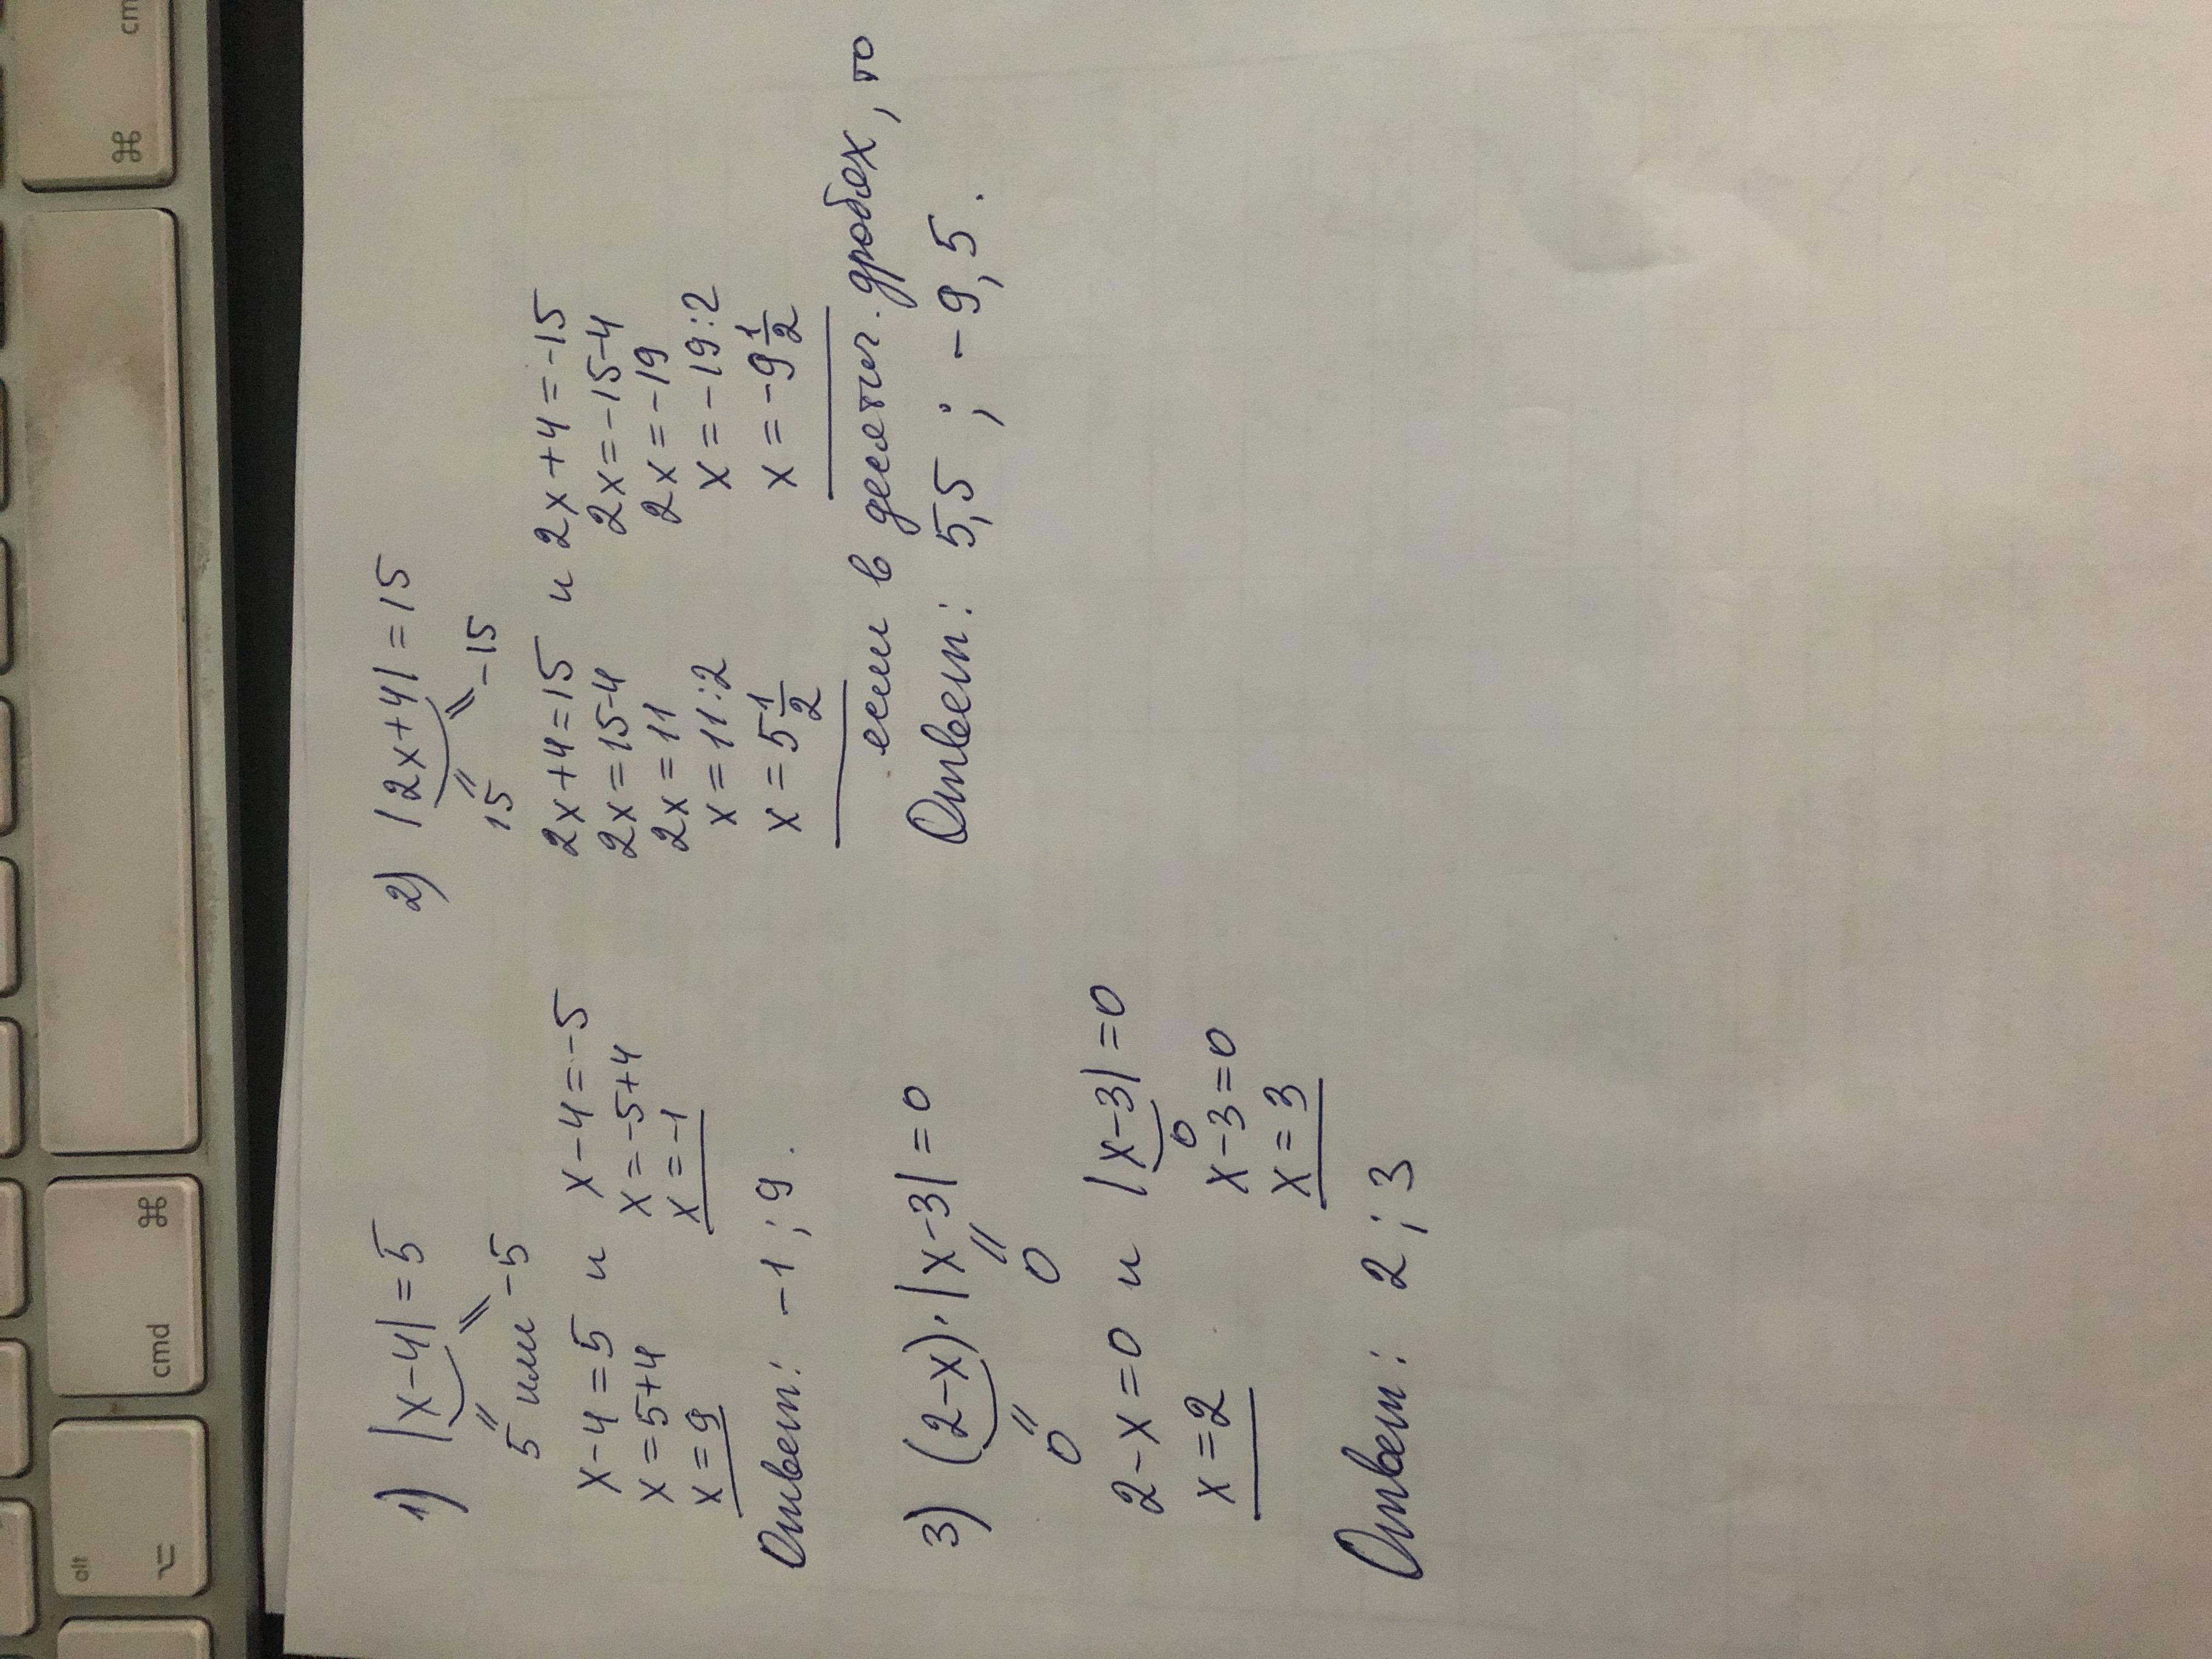 1) |x-4|=5
5 или -5
x-4=5 и x-4=-5
x=5+4 x=-5+4
x=9 x=-1
Ответ: -1; 9.
2) |2x+4|=15
15 -15
2x+4=15 и 2x+4=-15
2x=15-4 2x=-15-4
2x=11 2x=-19
x=11:2 x=-19:2
x=5 1/2 x=-9 1/2
если в десятич. дробях, то
Ответ: 5,5; -9,5.
3) (2-x)·|x-3|=0
0 0
2-x=0 и |x-3|=0
0
x=2 x-3=0
x=3
Ответ: 2; 3
alt
⌥
cmd
⌘
⌘
cm